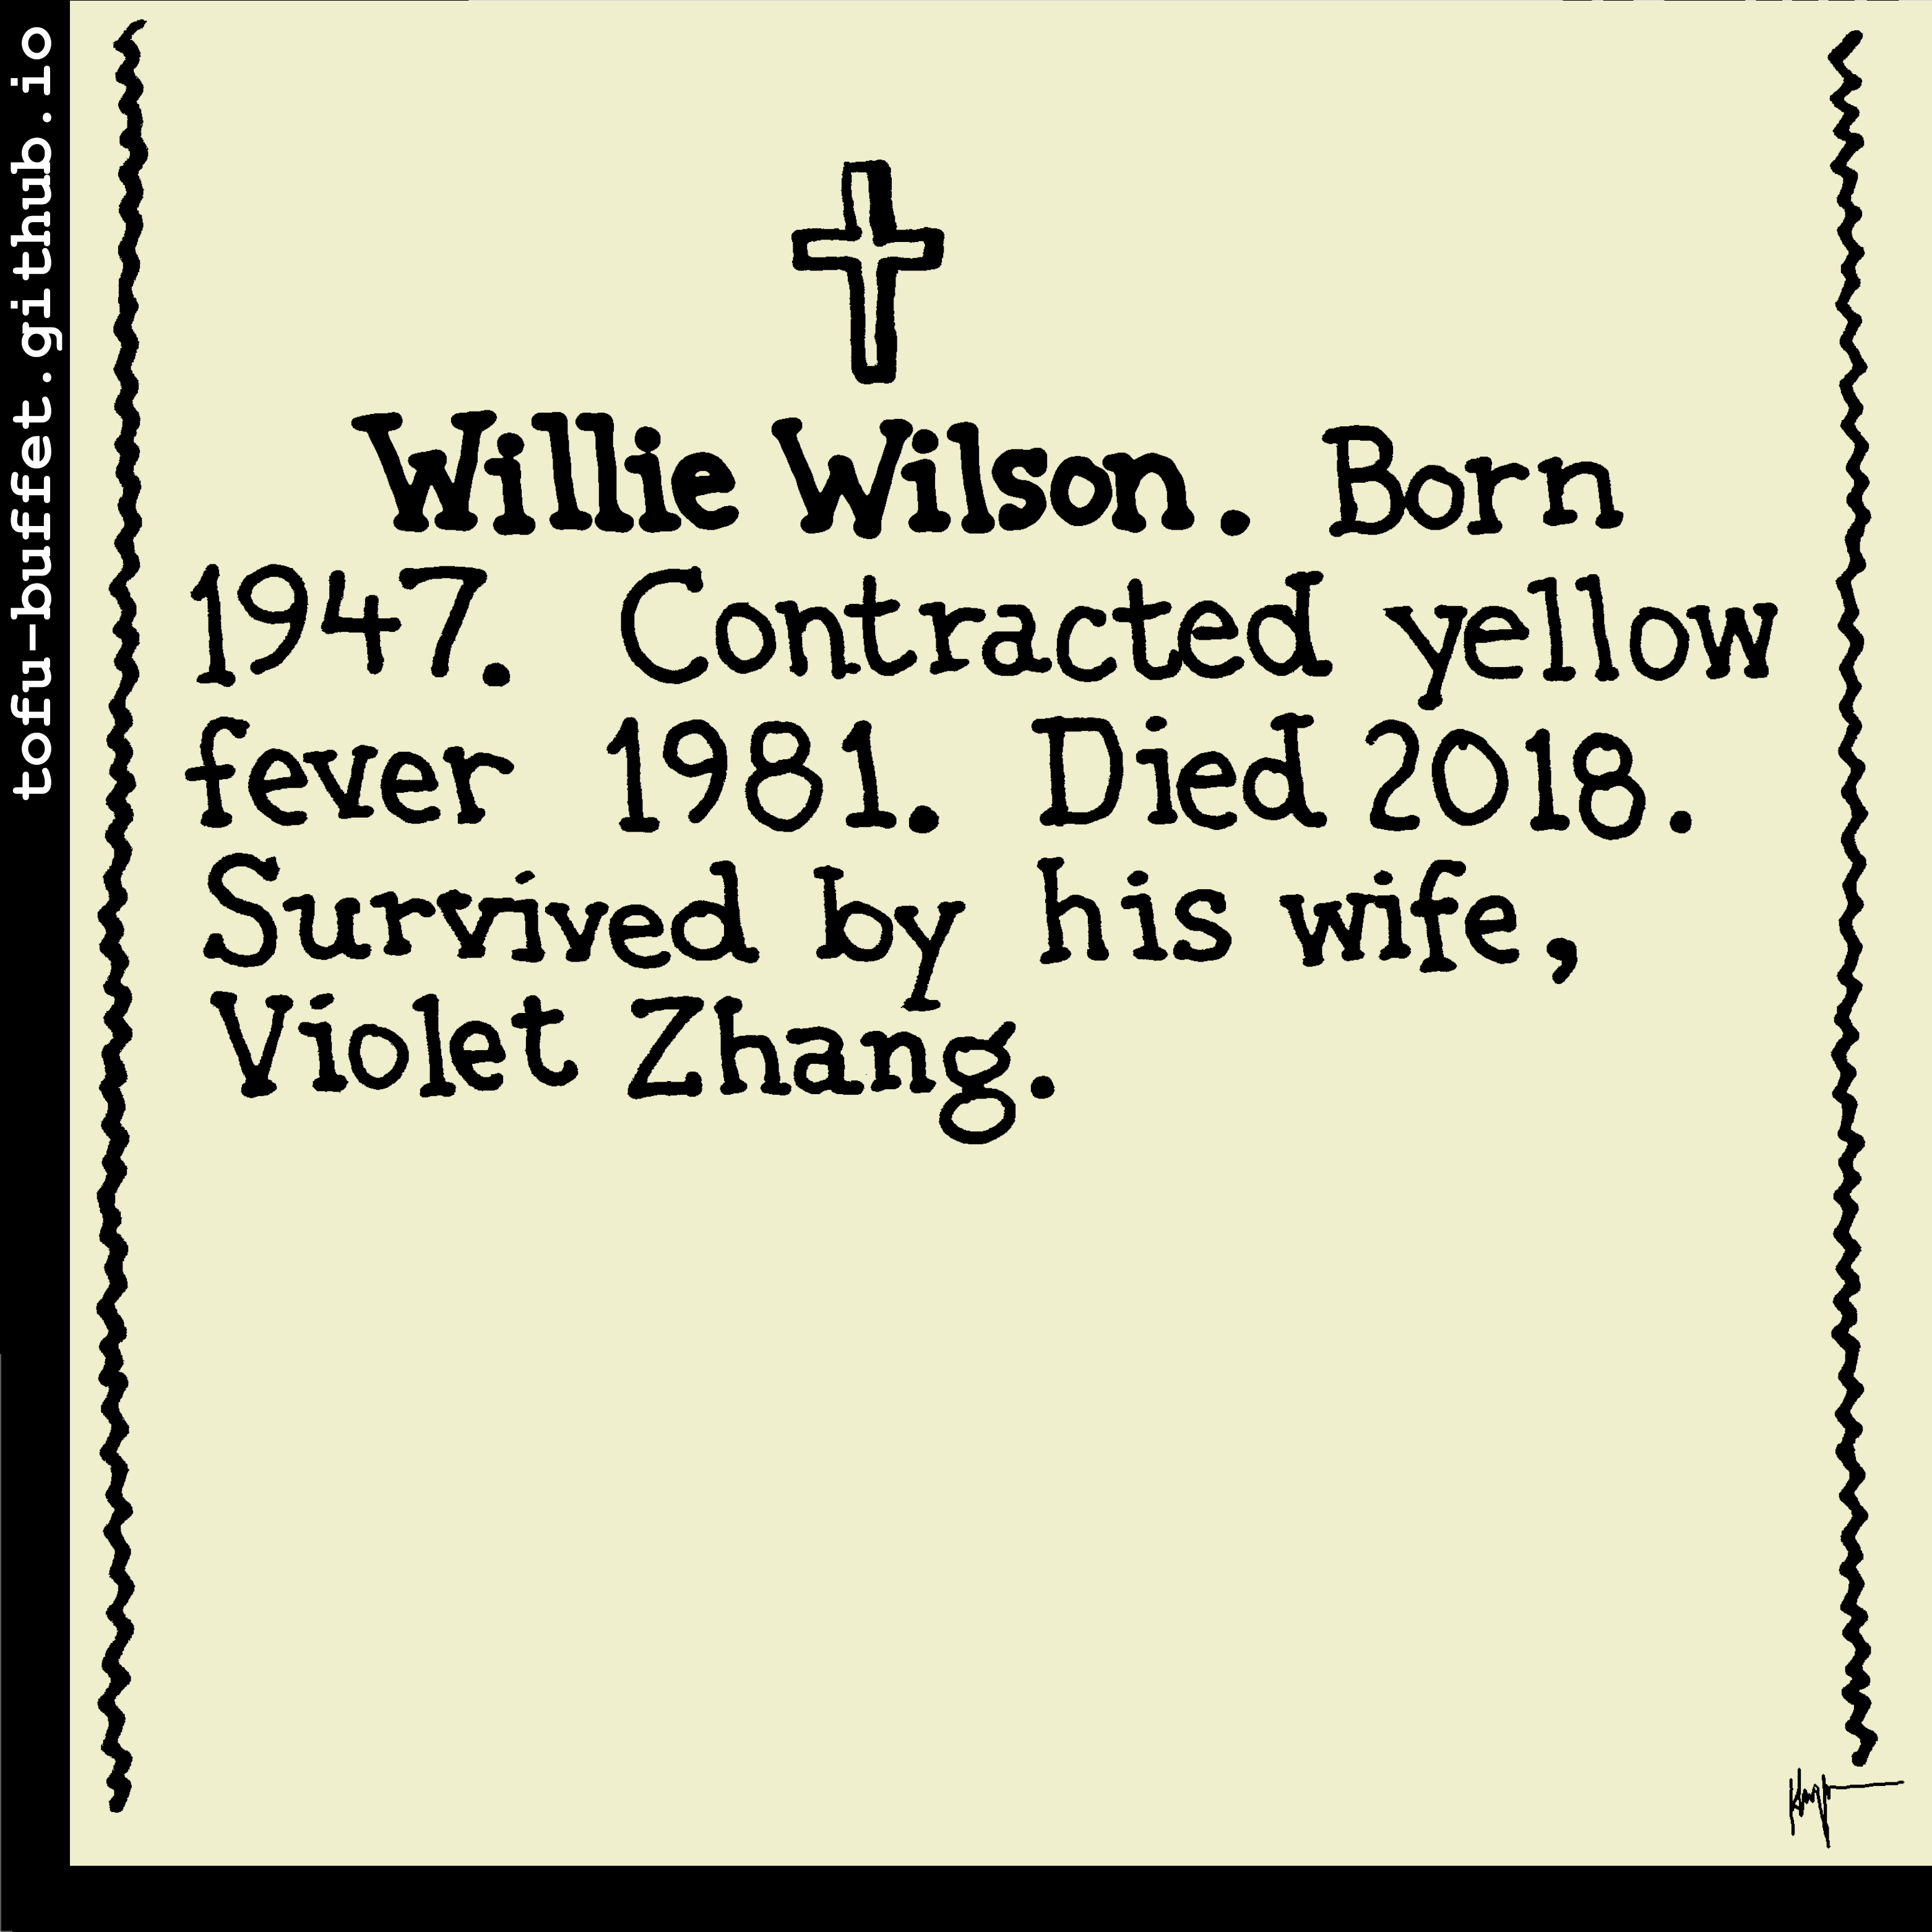 tofu-buffet.github.io
Willie Wilson. Born
1947. Contracted yellow
fever 1981. Died 2018.
Survived by his wife,
Violet Zhang.